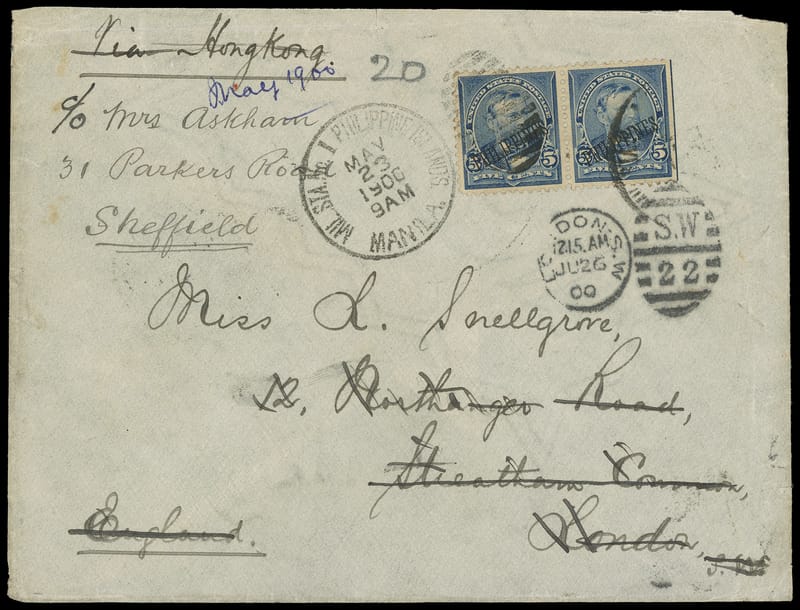 Via Hongkong.
May 1900
20
c/o Mrs Askham
31 Parkers Road
Sheffield
MIL. STA. No. 1 PHILIPPINE ISLANDS.
MAY
23
1900
9AM
MANILA.
UNITED STATES POSTAGE
UNITED STATES POSTAGE
PHILIPPINES
PHILIPPINES
5 5
5 5
FIVE CENTS
LONDON. S.W
12.15.AM
JU 26
00
S.W
22
Miss L. Snellgrove,
12, Road,
Streatham Common,
London,
S.W.
England.